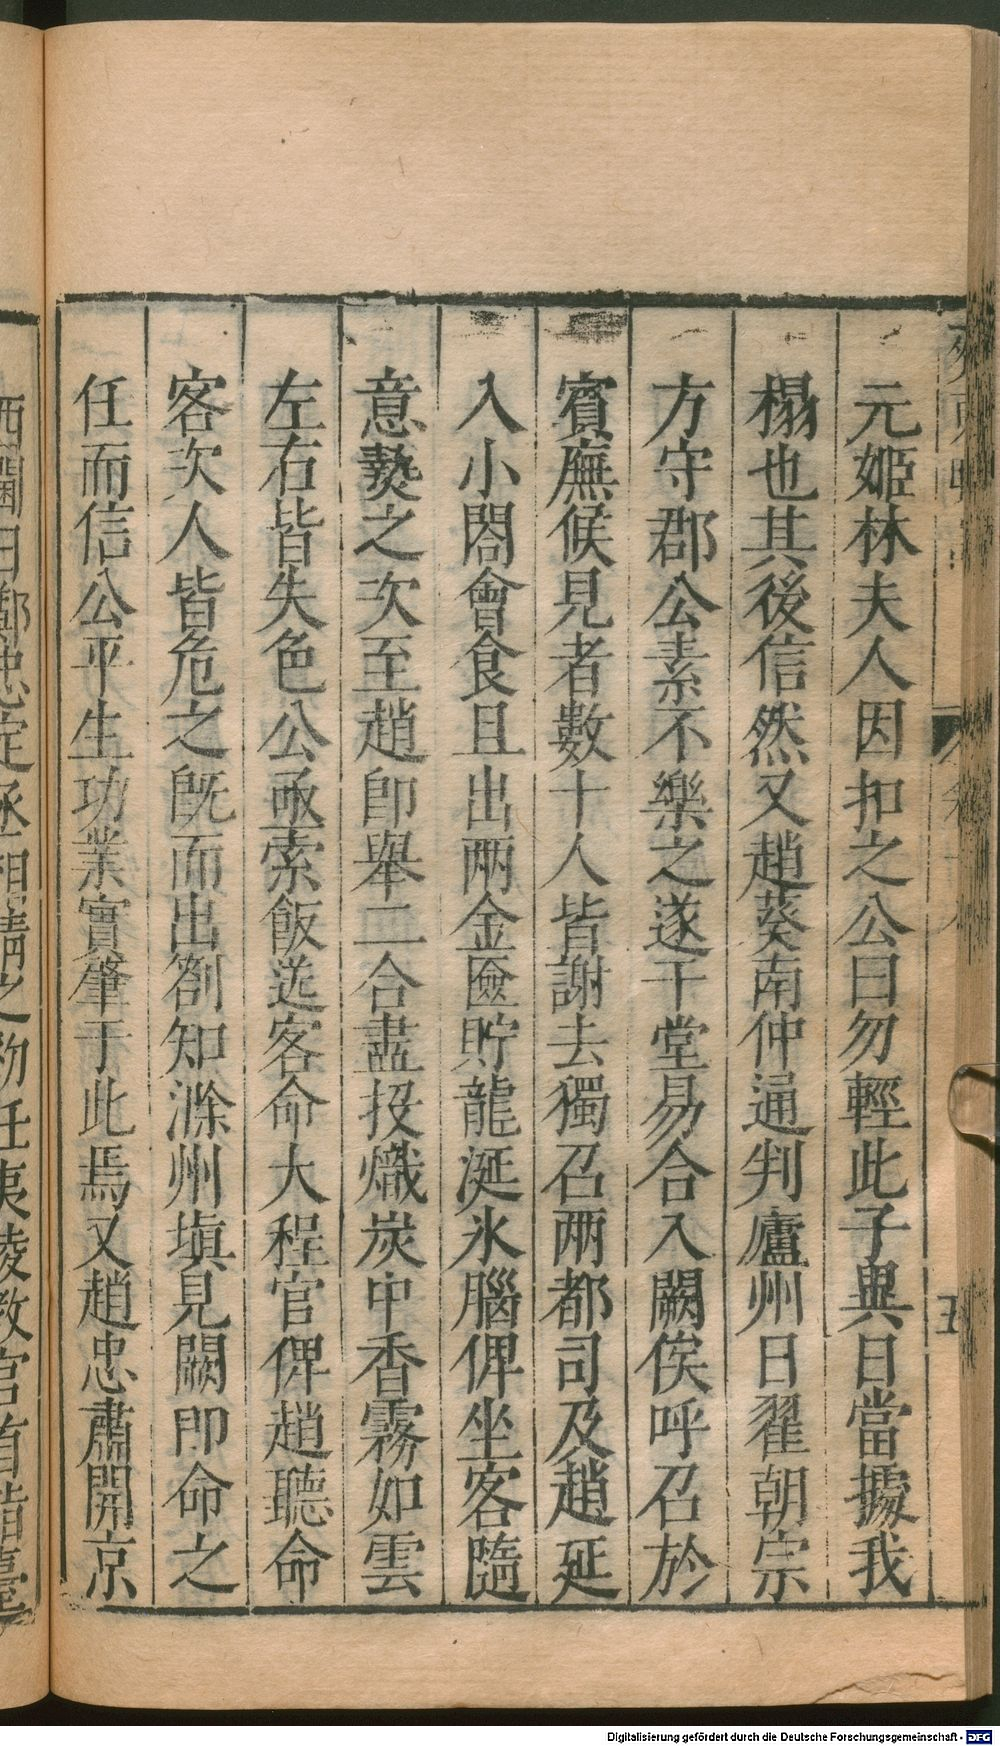 元姬林夫人因扣之公曰勿輕此子異日當據我
榻也其後信然又趙葵南仲通判廬州日翟朝宗
方守郡公素不樂之遂干堂易合入闕俟呼召於
賓廡候見者數十人皆謝去獨召兩都司及趙延
入小閤會食且出兩金匳貯龍涎氷腦俾坐客隨
意爇之次至趙卽舉二合盡投熾炭中香霧如雲
左右皆失色公亟索飯送客命大程官俾趙聽命
客次人皆危之旣而出劄知滁州塡見闕卽命之
任而信公平生功業實肇于此焉又趙忠肅開京
西閫日鄭忠定丞相清之初任夷陵敎官首詣臺
五
Digitalisierung gefördert durch die Deutsche Forschungsgemeinschaft - DFG